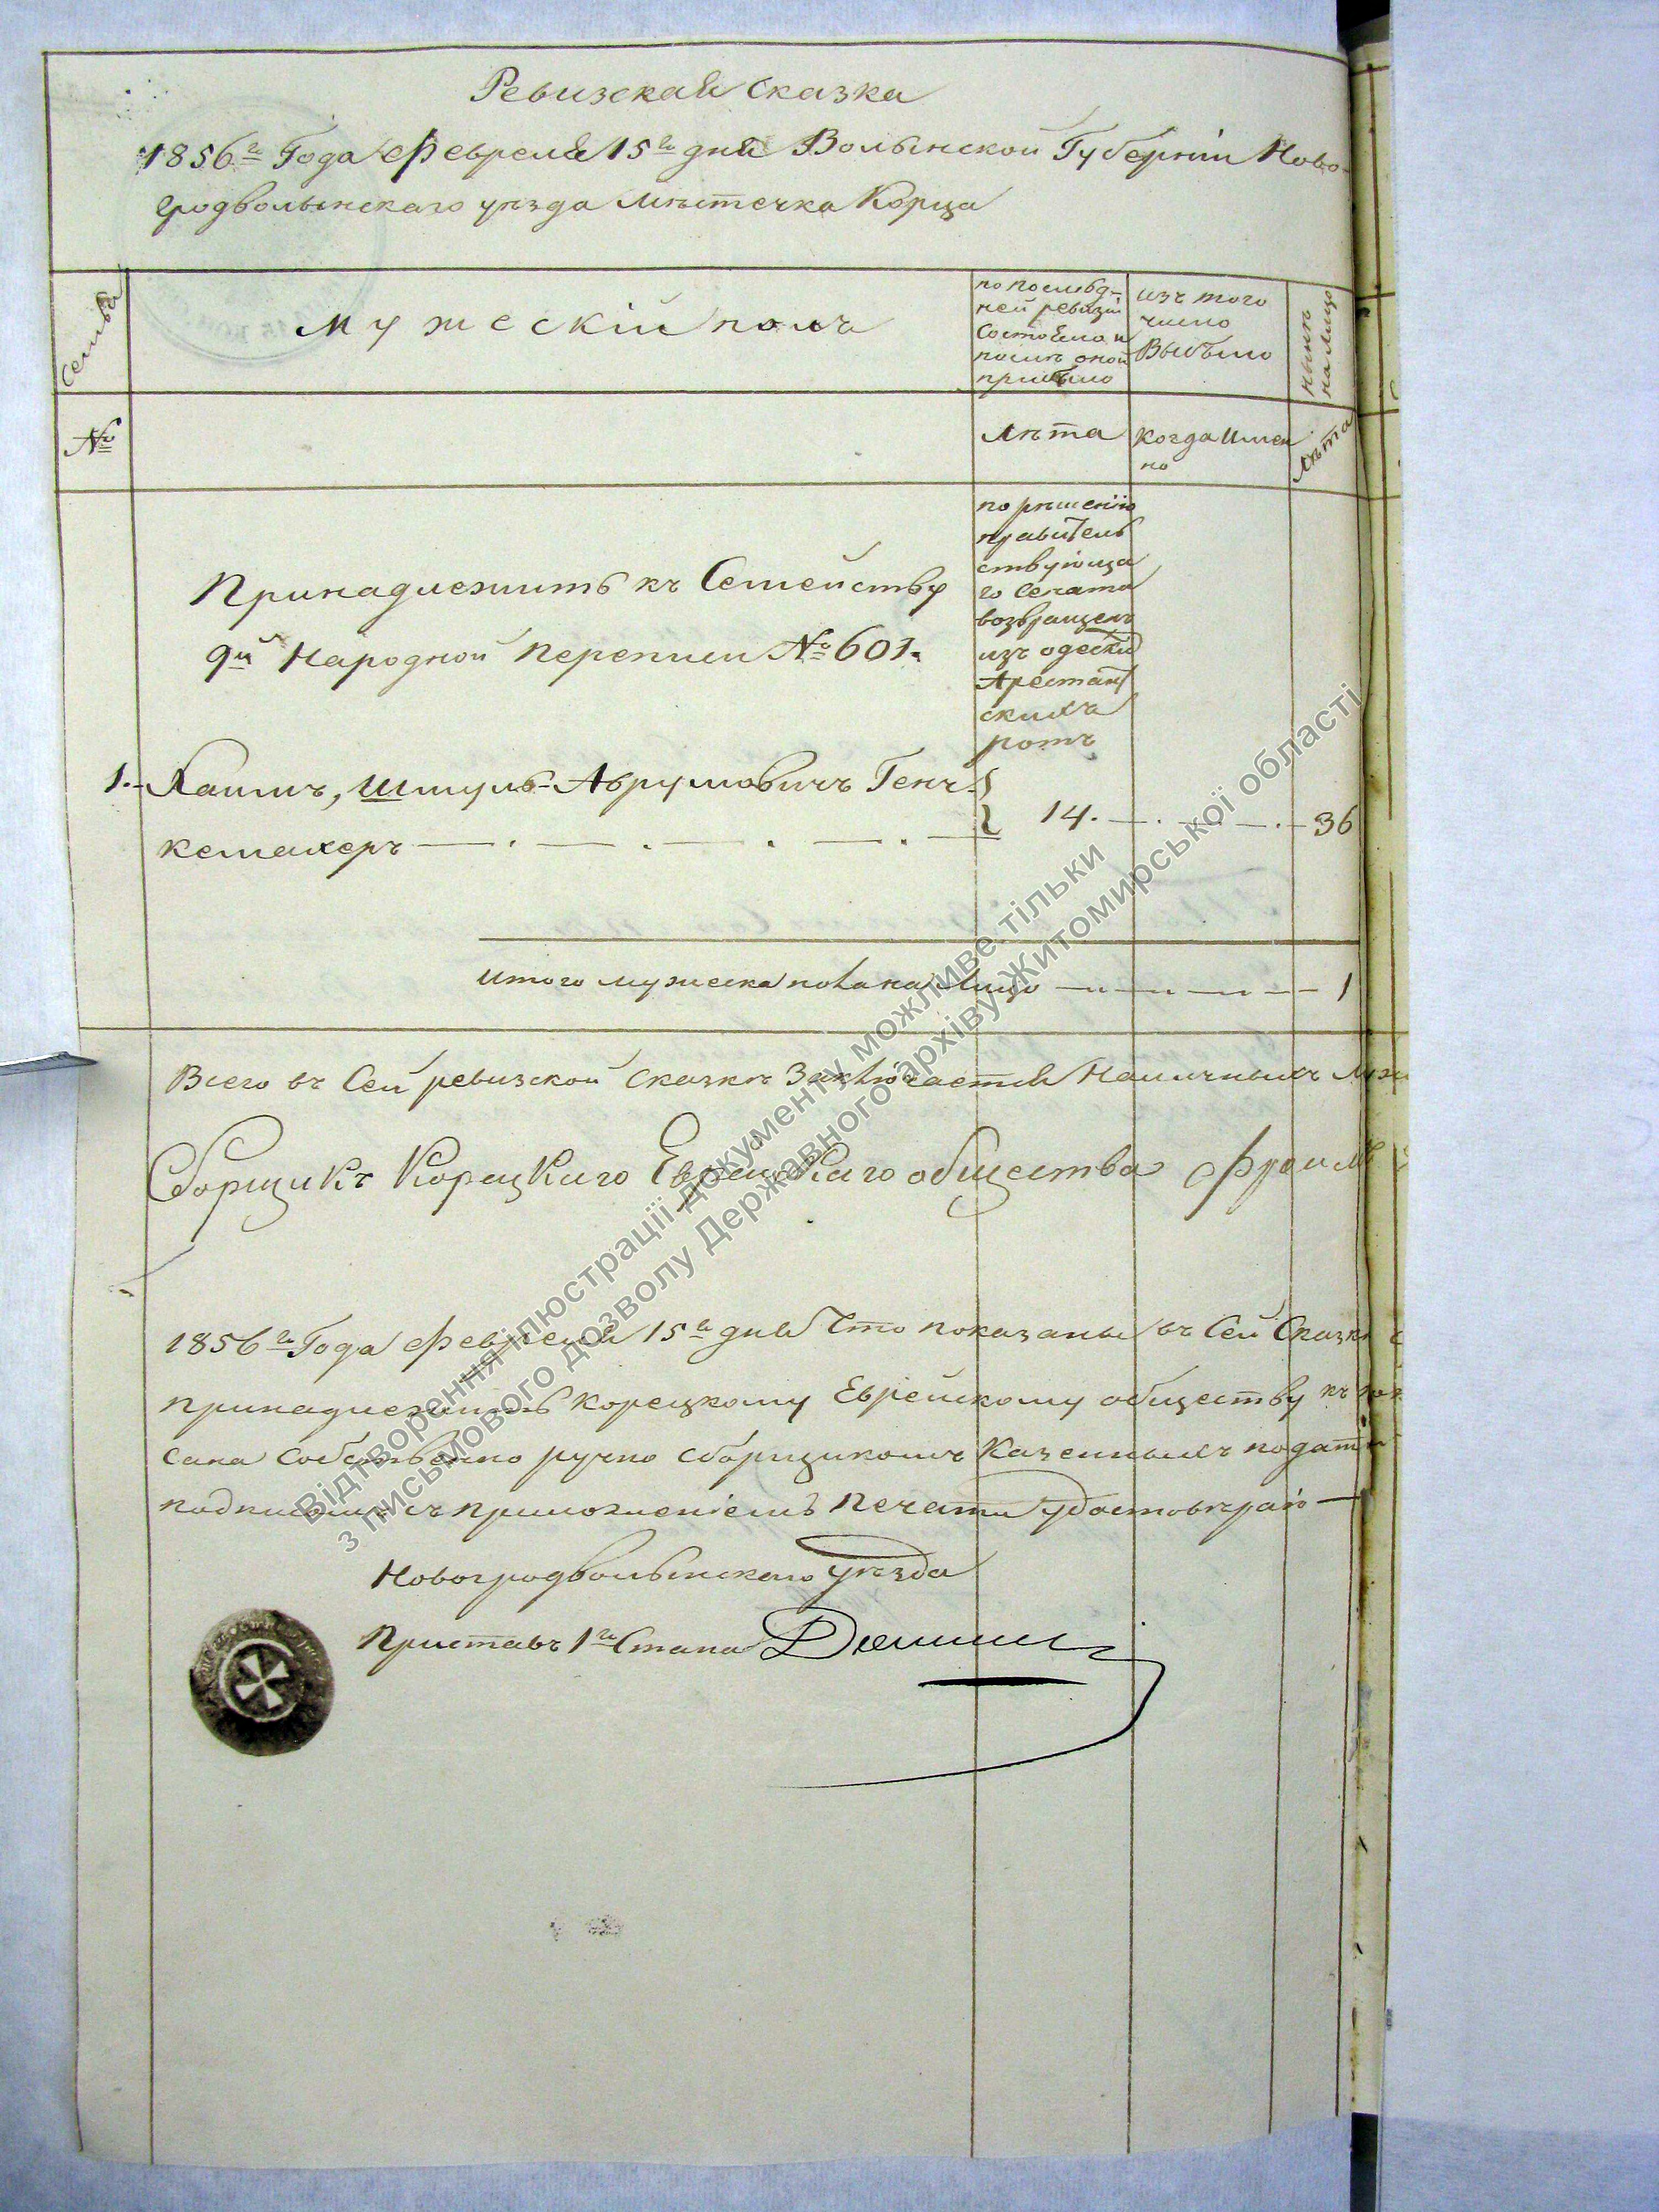 Ревизская сказка
1856го Года Февраля 15го дня Волынской Губерніи Ново-
градволынскаго уѣзда мѣстечка Корца
Семья
мужескій полъ
по послѣд-
ней ревизіи
состояло и
послѣ оной
прибыло
изъ того
число
выбыло
нынѣ
на лицо
№
лѣта
когда имен
но
лѣта
по рѣшенію
правитель
ствующа
го Сената
возвращенъ
изъ одески
Арестант
скихъ
ротъ
Принадлежить къ Семейству
9й Народной Переписи № 601.
1. Хаимъ, Шмуль-Аврумовичъ Генч
кемахеръ
14.
36
Итого мужеска пола на Лицо 1
Всего въ Сей ревизской сказкѣ Заключается Наличныхъ
Сборщикъ Корецкаго Еврейскаго общества Фроим
1856го Года Февраля 15го дня Что показаны въ Сей Сказкѣ
принадлежить Корецкому Еврейскому обществу къ
сана Собственно ручно сборщикомъ Казенныхъ податей
подписомъ съ приложеніемъ Печати удостовѣраю
Новоградволынскаго уѣзда
Приставъ 1го Стана
Відтворення ілюстрації документу можливе тільки
з письмового дозволу Державного архіву Житомирської області